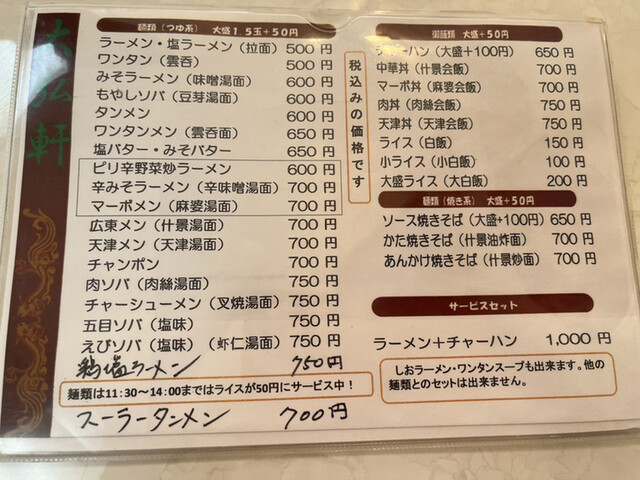 大弘軒
麺類（つゆ系） 大盛１.５玉＋５０円
ラーメン・塩ラーメン（拉面） 500円
ワンタン（雲呑） 500円
みそラーメン（味噌湯面） 600円
もやしソバ（豆芽湯面） 600円
タンメン 600円
ワンタンメン（雲呑面） 650円
塩バター・みそバター 650円
ピリ辛野菜炒ラーメン 600円
辛みそラーメン（辛味噌湯面） 700円
マーボメン（麻婆湯面） 700円
広東メン（什景湯面） 700円
天津メン（天津湯面） 700円
チャンポン 700円
肉ソバ（肉絲湯面） 750円
チャーシューメン（叉焼湯面） 750円
五目ソバ（塩味） 750円
えびソバ（塩味）（虾仁湯面） 750円
鶏塩ラーメン 750円
麺類は11:30～14:00まではライスが50円にサービス中！
スーラータンメン 700円
税込みの価格です
御飯類 大盛＋50円
チャーハン（大盛＋100円） 650円
中華丼（什景会飯） 700円
マーボ丼（麻婆会飯） 700円
肉丼（肉絲会飯） 750円
天津丼（天津会飯） 750円
ライス（白飯） 150円
小ライス（小白飯） 100円
大盛ライス（大白飯） 200円
麺類（焼き系） 大盛＋50円
ソース焼きそば（大盛+100円） 650円
かた焼きそば（什景油炸面） 700円
あんかけ焼きそば（什景炒面） 700円
サービスセット
ラーメン＋チャーハン 1,000円
しおラーメン・ワンタンスープも出来ます。他の
麺類とのセットは出来ません。